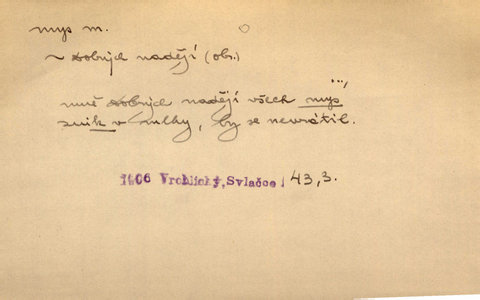 mys m.
~ dobrých nadějí (obr.)
muě dobrých nadějí všech mys
snik v mlhy, by se nevrátil.
1406 Vrchlický, Svlačce 43,3.